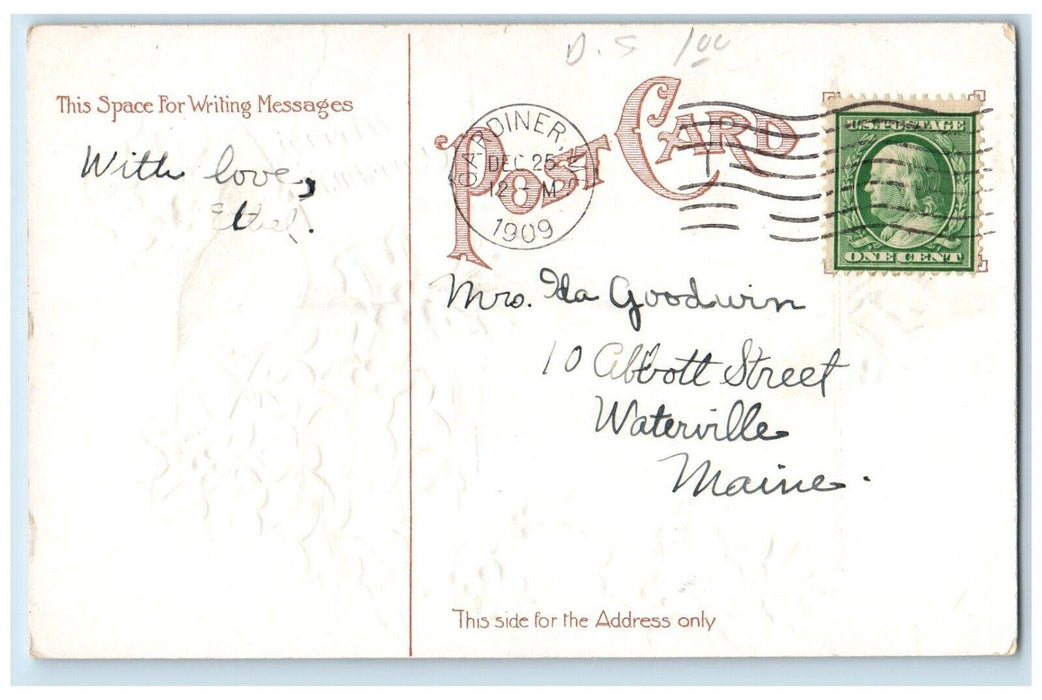 D.S 1.00
This Space For Writing Messages
With love,
Ethel.
POST CARD
GARDINER, ME.
DEC 25
12 - M
1909
U.S. POSTAGE
ONE CENT
Mrs. Ida Goodwin
10 Abbott Street
Waterville
Maine.
This side for the Address only